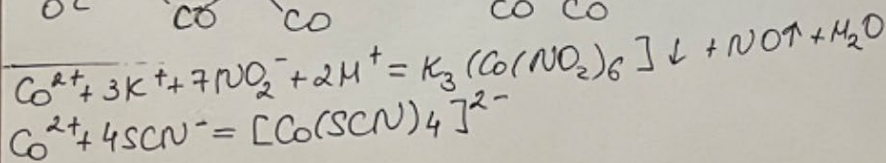 OC CO CO CO CO
Co²⁺ + 3K⁺ + 7NO₂⁻ + 2H⁺ = K₃(Co(NO₂)₆]↓ + NO↑ + H₂O
Co²⁺ + 4SCN⁻ = [Co(SCN)₄]²⁻